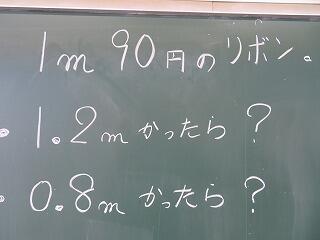 1m 90円のリボン。
・1.2mかったら?
・0.8mかったら?